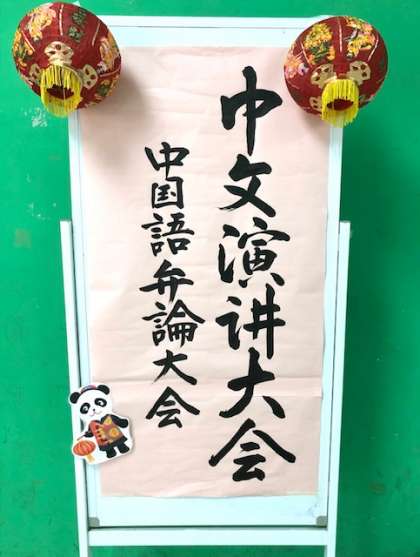 中文演讲大会
中国語弁論大会